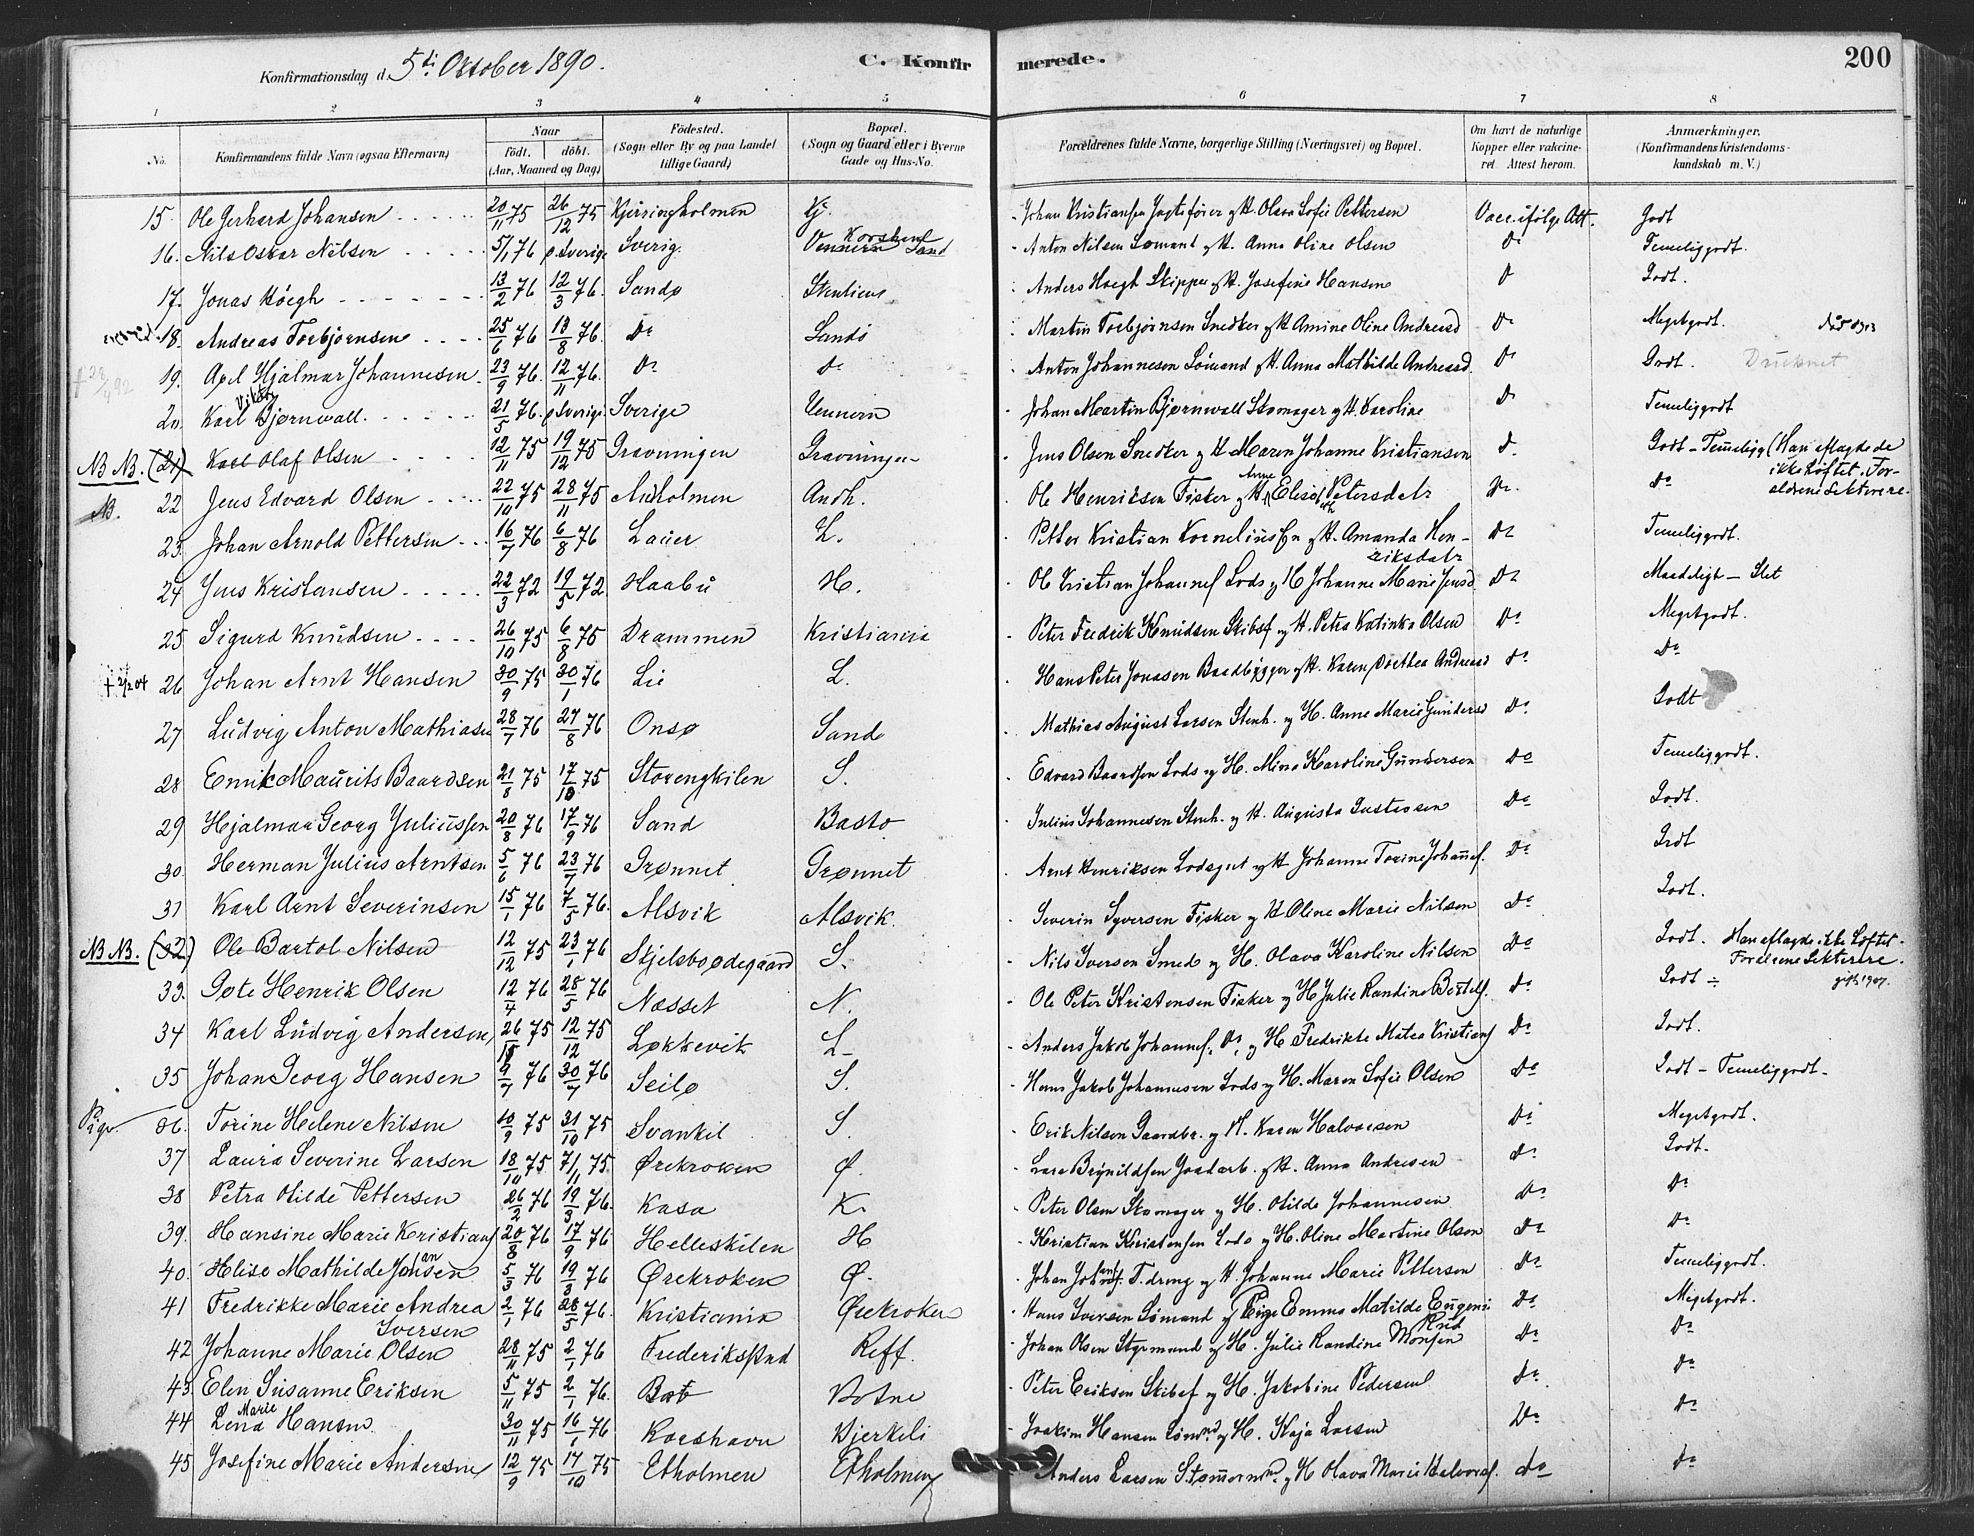 Konfirmationsdag d. 5te Oktober 1890.
C. Konfirmerede.
200
1 2 3 4 5 6 7 8
No. Konfirmandens fulde Navn (ogsaa Efternavn) Naar født. døbt. (Aar, Maaned og Dag) Fødested. (Sogn eller By og paa Landet tillige Gaard) Bopæl. (Sogn og Gaard eller i Byerne Gade og Hus-No. Forældrenes fulde Navne, borgerlige Stilling (Næringsvei) og Bopæl. Om havt de naturlige Kopper eller vaccineret. Attest herom. Anmærkninger. (Konfirmandens Kristendomskundskab m. V.)
15. Ole Gerhard Johansen 20/11 75 26/12 75 Kjerringholmen Kj. Johan Kristiansen Jagtefører og H. Olava Sofie Pettersen Vacc. ifølge Att. Godt
16. Nils Oskar Nilsen 5/1 76 i Sverige Sverig. Vennern Korshavn Sand Anton Nilsen Sømand og H. Anna Oline Olsen Do Temeliggodt.
17. Jonas Høegh 13/2 76 12/3 76. Sandø Anders Høegh Skipper og H. Josefine Hansen D Godt.
18. Andreas Torbjørnsen 25/6 76 13/8 76. Do Sandø Martin Torbjørnsen Snedker og H. Amine Oline Andreasd Do Megetgodt.
19. Axel Hjalmar Johannesen 23/9 76. 12/11 76. Do Do Anton Johannesen Sømand og H. Anna Mathilde Andreasd. Do Godt. Druknet
20 Karl Viktor Bjørnwall. 21/5 76. i Sverige Sverige Vennern Johan Martin Bjørnwall Skomager og H. Karoline Do Temeliggodt
NB NB. (21) Karl Olaf Olsen 12/11 75 19/12 75 Gravningen Gravningen Jens Olsen Snedker og H Maren Johanne Kristiansen D. Godt - Temelig (Han aflagde ikke Løftet. Forældrene Sekterere.
NB. 22 Jens Edvard Olsen 22/10 75 28/11 75 Asholmen Andh. Ole Henriksen Fisker og H. Anne Elisabeth Petersdatr Do. Do
23. Johan Arnold Pettersen 16/7 76 6/8 76 Lauer L. Petter Kristian Korneliussen og H. Amanda Henriksdatr Do Temeliggodt.
24 Jens Kristansen 22/3 72 19/5 72 Haabu H. Ole Kristian Johannes. Lods og H Johanne Marie Jensd. Do Maadeligt - Slet
25 Sigurd Knudsen 26/10 75 6/8 75 Drammen Kristiania Peter Fredrik Knudsen Skibsf og H. Petra Katinka Olsen Do Megetgodt.
+ 2/2 04 26 Johan Arnt Hansen 30/9 75 30/1 76 Lie L. Hans Peter Jonasen Baadbygger og H. Karen Dorthea Andreasd Do Do
27 Ludvig Anton Mathiasen 28/7 76 27/8 76 Onsø Sand Mathias August Larsen Stenh. og H. Anne Marie Gundersd Do Godt
28 Emrik Maurits Baardsen 21/8 75 17/10 75 Storengkilen S. Edvard Baardsen Lods og H. Mina Karoline Gundersen Do Temeliggodt.
29 Hjalmar Georg Juliussen 20/8 76 17/9 76 Sand Bastø Julius Johannesen Stenh. og H. Augusta Gustavsen Do Godt.
30. Herman Julius Arntsen 5/6 76 23/7 76 Grønnet Grønnet Arnt Henriksen Lodsgut og H Johanne Torine Johannes. Do Godt
31 Karl Arnt Severinsen 15/1 76 7/5 76. Alsvik Alsvik. Severin Syversen Fisker og H Oline Marie Nilsen Do Godt.
NB NB. (32) Ole Bartol Nilsen 12/12 75 23/1 76 Skjelsbodegaard S. Nils Iversen Smed og H. Olava Karoline Nilsen Do Godt. Han aflagde ikke Løftet. Forældrene Sekterere.
33. Gote Henrik Olsen 12/4 76 28/5 76 Næsset N. Ole Peter Kristensen Fisker og H Julie Randine Bertels. Do Godt ÷ gift 1907.
34 Karl Ludvig Andersen 26/10 75 12/12 75 Løkkevik L- Anders Jakob Johannes. Do og H Fredrikke Matea Kristians Do Godt.
35 Johan Georg Hansen 9/7 76 30/7 76 Seilø S. Hans Jakob Johannesen Lods og H. Maren Sofie Olsen Do Godt - Temeliggodt -
Piger 36. Torine Helene Nilsen 10/9 75 31/10 75 Svankil S. Erik Nilsen Gaardbr. og H. Karen Halvorsen Do Megetgodt.
37 Laura Severine Larsen 18/10 75 7/11 75. Ørekroken Ø. Lars Brynildsen Gaardarb. og H. Anna Andresen Do Godt.
38 Petra Otilde Pettersen 26/2 76 19/3 76. Kasa K. Peter Olsen Skomager og H. Otilde Johannesen Do Do
39. Hansine Marie Kristians 20/8 76 17/9 76 Helleskilen H Kristian Kristensen Lods og H. Oline Martine Olsen Do Do
40. Elise Mathilde Johansen 5/3 76 19/3 76 Ørekroken Ø. Johan Johans. T.dreng og H. Johanne Marie Pettersen Do Temeliggodt.
41 Fredrikke Marie Andrea Iversen 2/1 76 28/5 76. Kristiania Ørekroken Hans Iversen Sømand og Pige Emma Matilde Eugenie Do Megetgodt.
42 Johanne Marie Olsen 28/11 75 2/1 76 Frederikstad Reff. Johan Olsen Styrmand og H. Julie Randine Monsen Do Do
43. Elen Susanne Eriksen 5/11 75 2/1 76. Bot Botne Peter Eriksen Skibsf og H. Jakobine Pedersen Do Do
44 Lena Marie Hansen 30/11 75 16/1 76 Korshavn Bjerkeli Joakim Hansen Sømnd og H. Kaja Larsen Do Do
45 Josefine Marie Andersen 12/9 75 17/10 75 Etholmen Etholmen Anders Larsen Stømornd. og H Olava Marie Halvors. Do Do